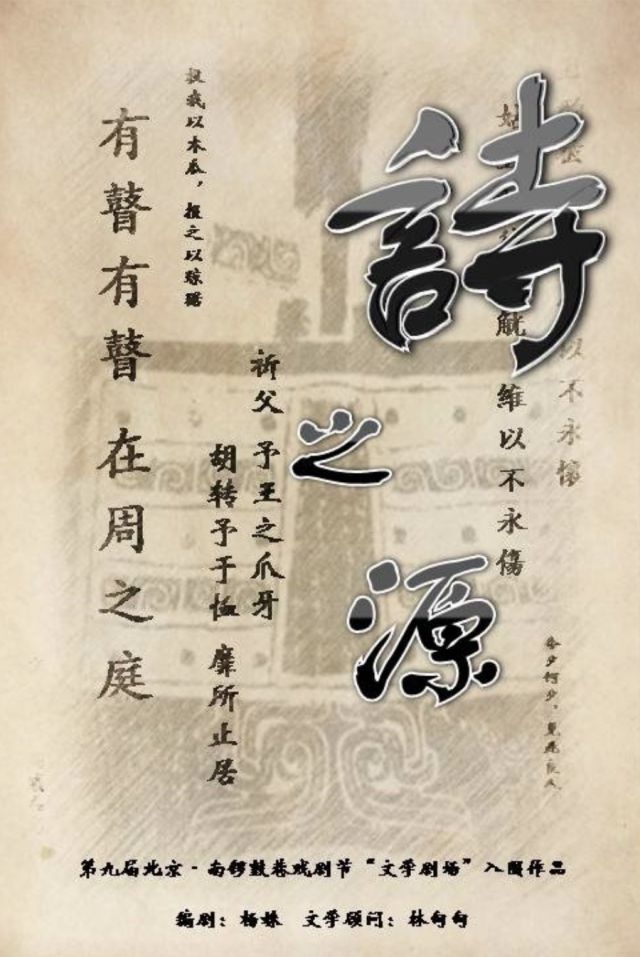 詩之源
以不永懷
姑
觥 維以不永傷
今夕何夕，見此良人
祈父 予王之爪牙
胡转予于恤 靡所止居
投我以木瓜，报之以琼琚
有瞽有瞽 在周之庭
第九届北京·南锣鼓巷戏剧节“文学剧场”入围作品
编剧：杨姝 文学顾问：林甸甸